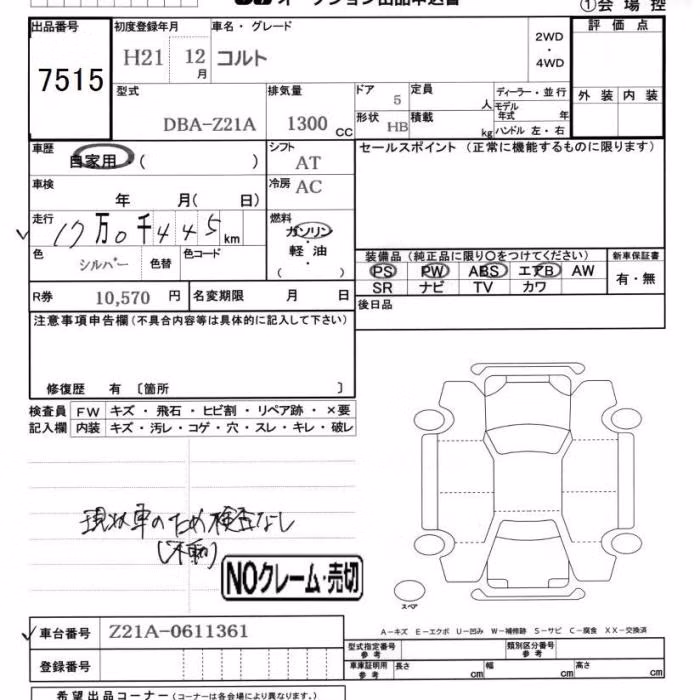 オークション出品申込書
①会場控
出品番号
7515
初度登録年月
H21 12月
車名・グレード
コルト
2WD
・
4WD
評価点
外装 内装
型式
DBA-Z21A
排気量
1300 CC
ドア
5
形状
HB
定員 人
積載 kg
ディーラー・並行
モデル年式 年
ハンドル 左・右
車歴
自家用・( )
シフト
AT
セールスポイント (正常に機能するものに限ります)
車検
年 月( 日)
冷房
AC
走行
17万0千445km
燃料
ガソリン
・
軽・油
( ・ )
色
シルバー
色替
色コード
装備品 (純正品に限り○をつけてください)
PS PW ABS エアB AW
SR ナビ TV カワ
新車保証書
有・無
R券 10,570 円
名変期限 月 日
後日品
注意事項申告欄 (不具合内容等は具体的に記入して下さい)
修復歴 有 〔箇所 〕
検査員
記入欄
FW キズ・飛石・ヒビ割・リペア跡・×要
内装 キズ・汚レ・コゲ・穴・スレ・キレ・破レ
現状車のため検査なし
(不動)
NOクレーム・売切
スペア
A-キズ E-エクボ U-凹み W-補修跡 S-サビ C-腐食 XX-交換済
車台番号 Z21A-0611361
登録番号
型式指定番号
参考
類別区分番号
参考
車庫証明用
参考
長さ cm
幅 cm
高さ cm
希望出品コーナー (コーナーは各会場により異なります。)